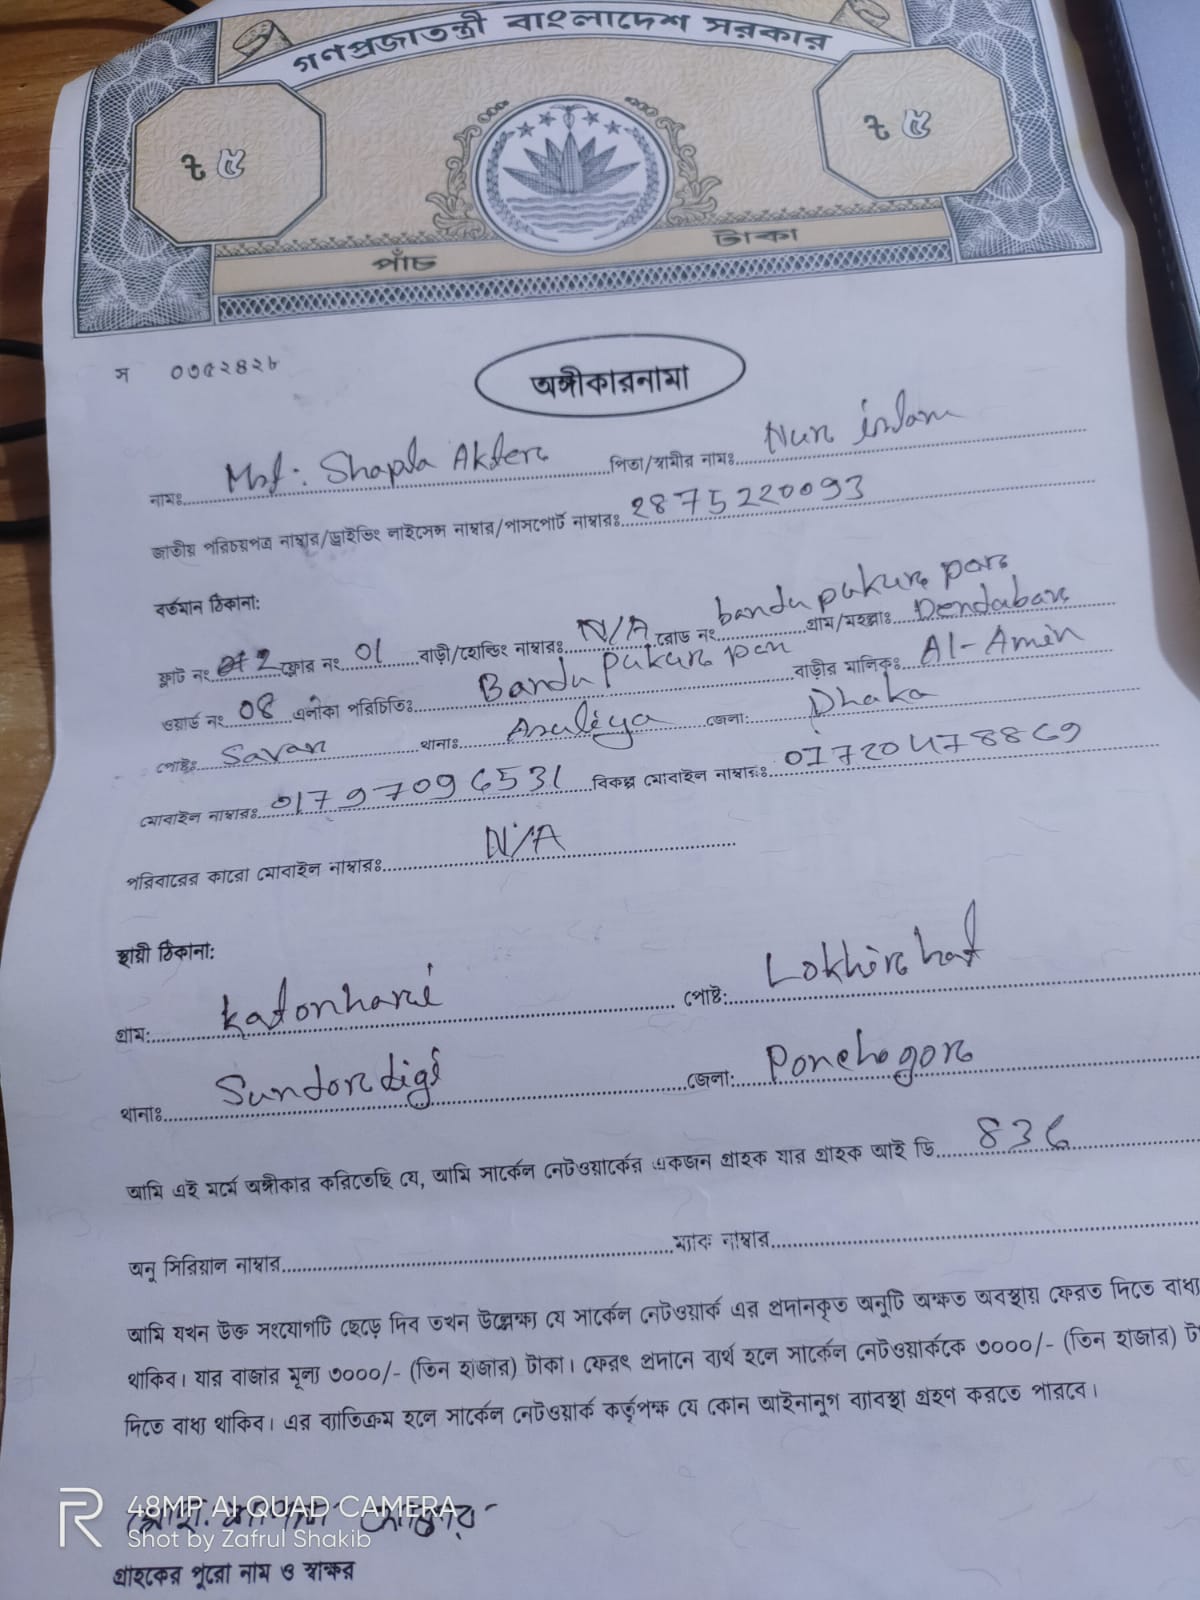 গণপ্রজাতন্ত্রী বাংলাদেশ সরকার
ট ৫ ট ৫
পাঁচ টাকা
স ০৩৫২৪২৮
অঙ্গীকারনামা
নামঃ Mst: Shapla Akter পিতা/স্বামীর নামঃ Nur islam
জাতীয় পরিচয়পত্র নাম্বার/ড্রাইভিং লাইসেন্স নাম্বার/পাসপোর্ট নাম্বারঃ 2875220093
বর্তমান ঠিকানা:
ফ্লাট নং 2 ফ্লোর নং 01 বাড়ী/হোল্ডিং নাম্বারঃ N/A রোড নং bandu pukur par গ্রাম/মহল্লাঃ Dendabar
ওয়ার্ড নং 08 এলাকা পরিচিতিঃ Bandu pukur par বাড়ীর মালিকঃ Al-Amin
পোষ্টঃ Savar থানাঃ Asuliya জেলা: Dhaka
মোবাইল নাম্বারঃ 01797096531 বিকল্প মোবাইল নাম্বারঃ 01720478869
পরিবারের কারো মোবাইল নাম্বারঃ N/A
স্থায়ী ঠিকানা:
গ্রাম: Katonhari পোষ্ট: Lokhirhat
থানাঃ Sundordigi জেলা: Ponchogor
আমি এই মর্মে অঙ্গীকার করিতেছি যে, আমি সার্কেল নেটওয়ার্কের একজন গ্রাহক যার গ্রাহক আই ডি 836
অনু সিরিয়াল নাম্বার ম্যাক নাম্বার
আমি যখন উক্ত সংযোগটি ছেড়ে দিব তখন উল্লেক্ষ্য যে সার্কেল নেটওয়ার্ক এর প্রদানকৃত অনুটি অক্ষত অবস্থায় ফেরত দিতে বাধ্য
থাকিব। যার বাজার মূল্য ৩০০০/- (তিন হাজার) টাকা। ফেরৎ প্রদানে ব্যর্থ হলে সার্কেল নেটওয়ার্ককে ৩০০০/- (তিন হাজার)
দিতে বাধ্য থাকিব। এর ব্যাতিক্রম হলে সার্কেল নেটওয়ার্ক কর্তৃপক্ষ যে কোন আইনানুগ ব্যাবস্থা গ্রহণ করতে পারবে।
R 48MP AI QUAD CAMERA
Shot by Zafrul Shakib
গ্রাহকের পুরো নাম ও স্বাক্ষর